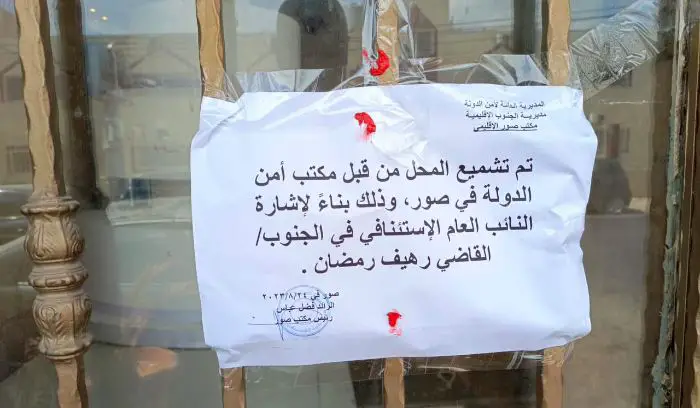 المديرية العامة لأمن الدولة
مديرية الجنوب الاقليمية
مكتب صور الاقليمي
تم تشميع المحل من قبل مكتب أمن
الدولة في صور، وذلك بناءً لإشارة
النائب العام الإستئنافي في الجنوب/
القاضي رهيف رمضان .
صور في ٢٠٢٣/٨/٢٤
الرائد فضل عباس
رئيس مكتب صور